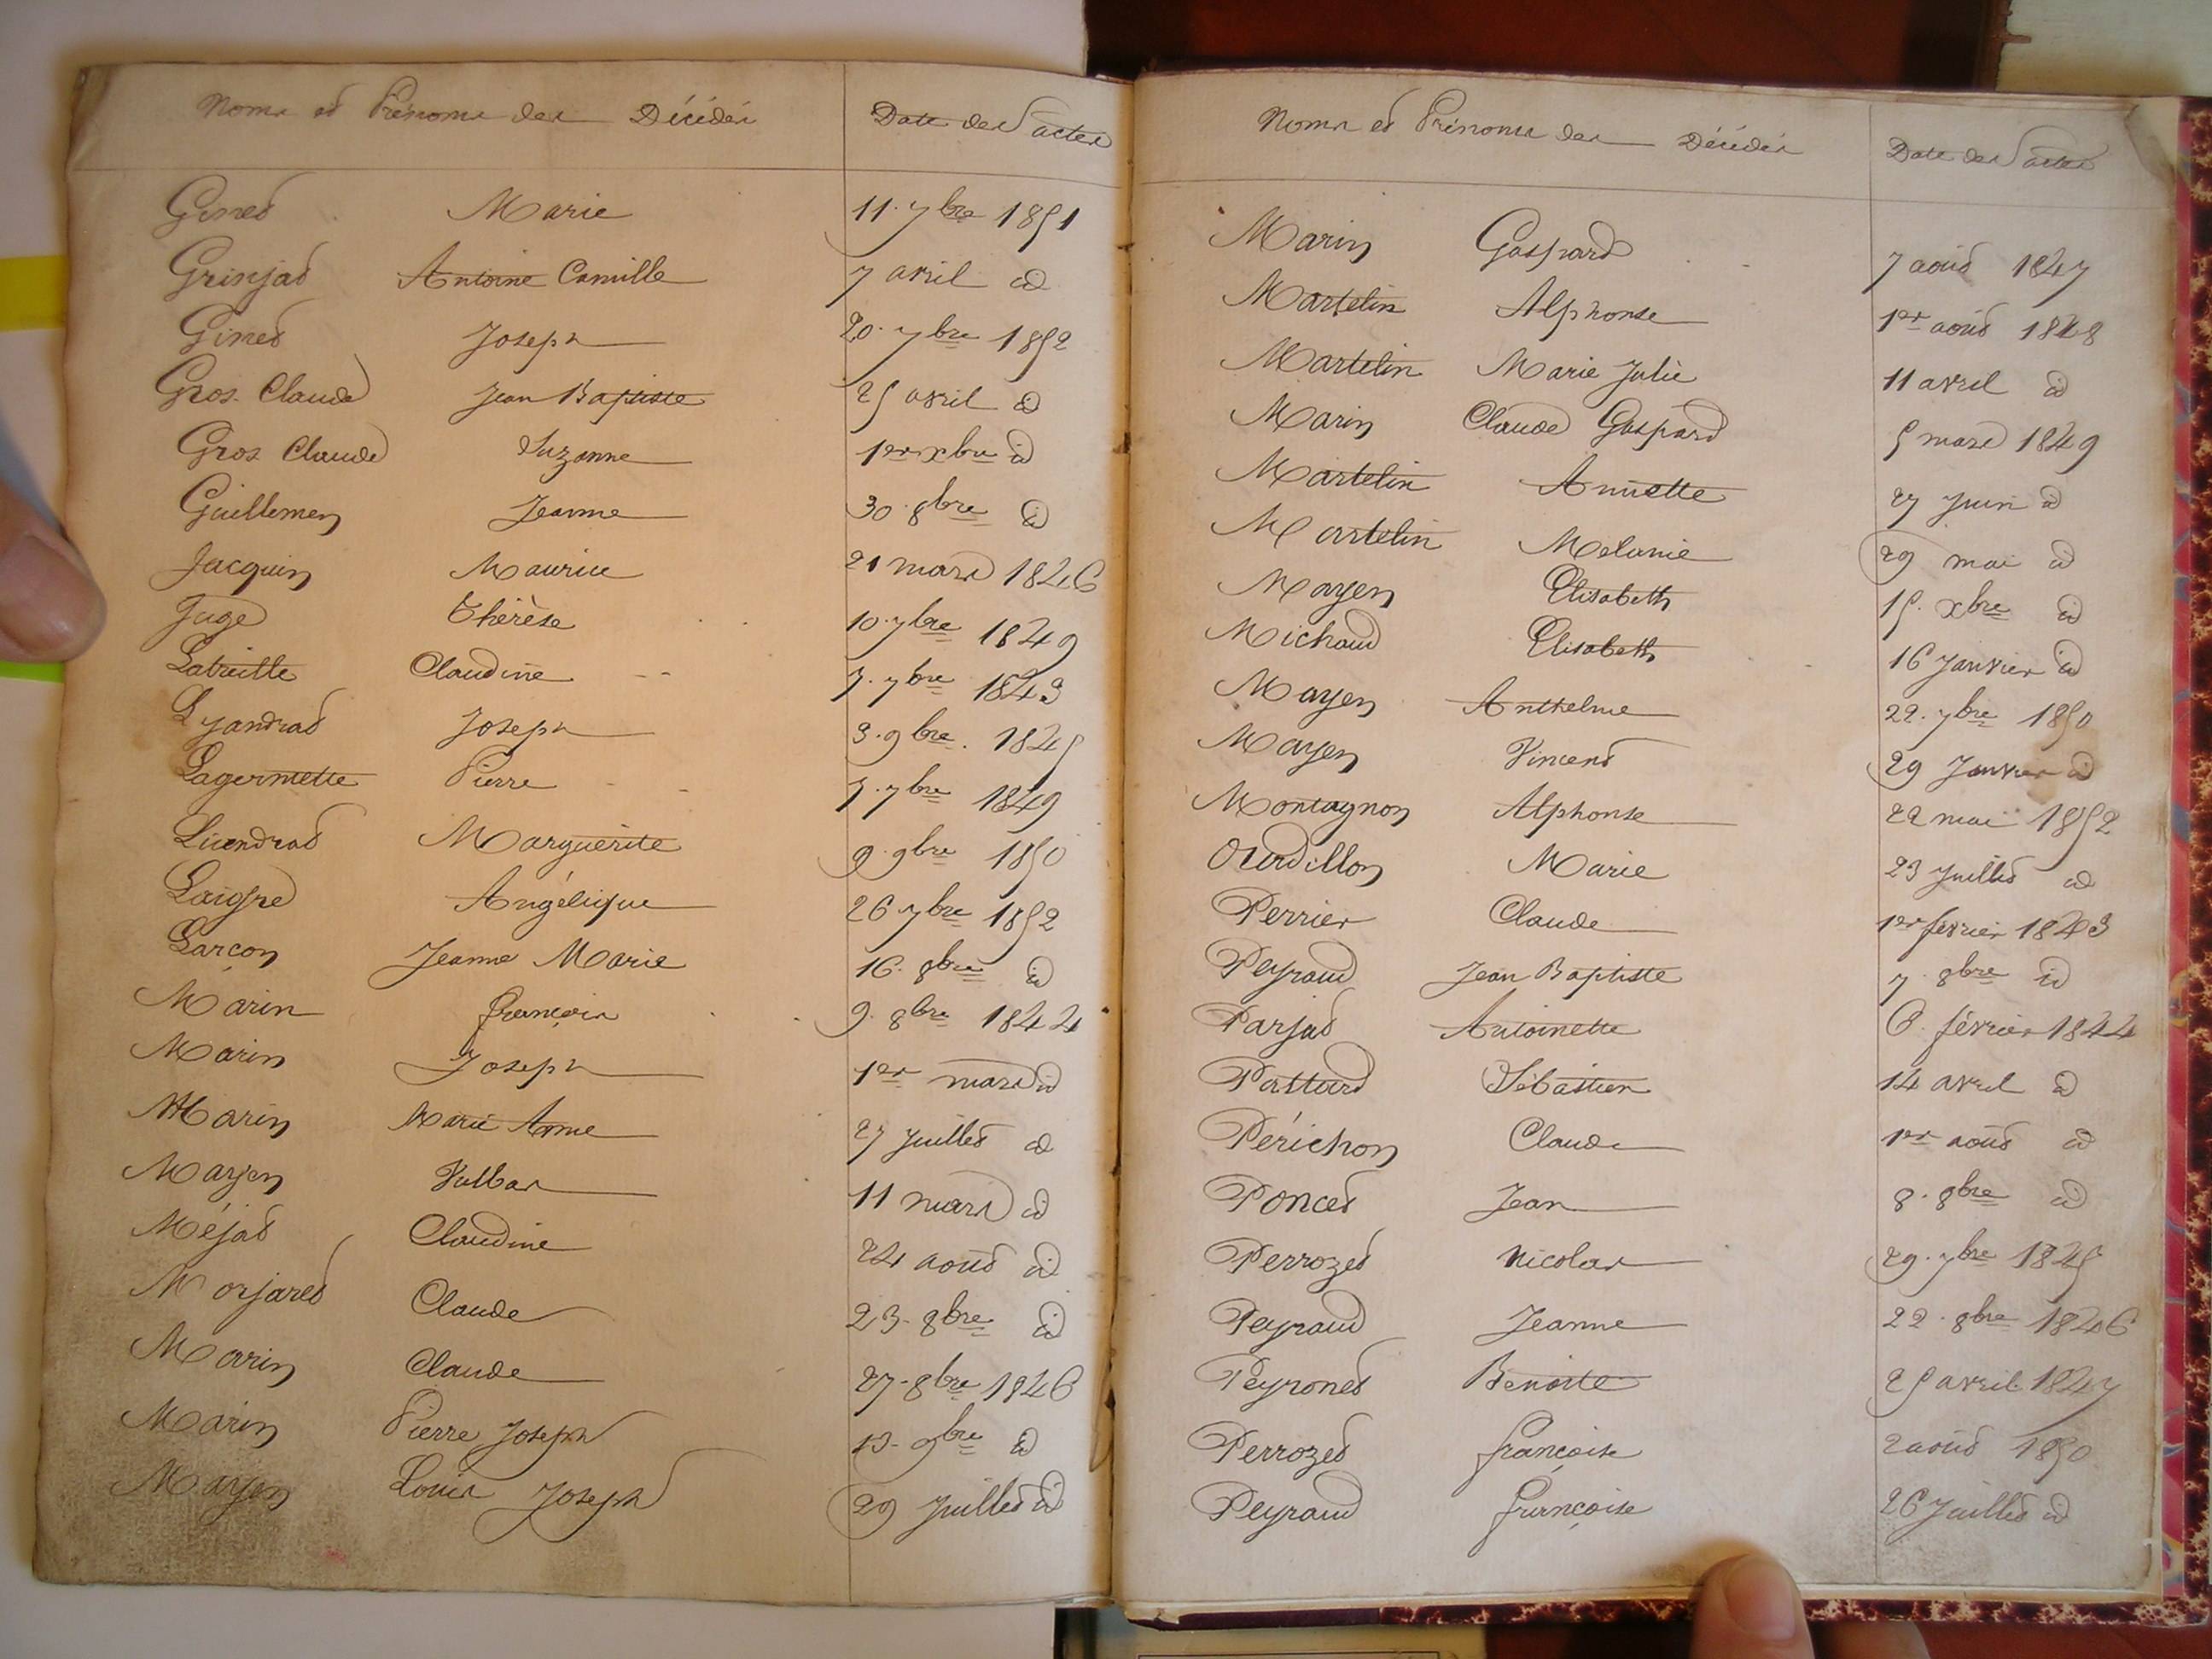 Noms et Prénoms des Décédés Date des actes
Ginet Marie 11. 7bre 1851
Grinjat Antoine Camille 7 avril id
Ginet Joseph 20. 7bre 1852
Gros. Claude Jean Baptiste 25 avril id
Gros Claude Suzanne 1er xbre id
Guillemen Jeanne 30. 8bre id
Jacquin Maurice 21 mars 1846
Juge Thérèse 10. 7bre 1849
Latreille Claudine 7. 7bre 1843
Lyandrat Joseph 3. 9bre. 1845
Lagermette Pierre 7. 7bre 1849
Liandrat Marguerite 9. 9bre 1850
Laigre Angélique 26 7bre 1852
Larçon Jeanne Marie 16. 8bre id
Marin françois 9. 8bre 1844
Marin Joseph 1er mars id
Marin Marie Anne 27 Juillet id
Mayen Vulbas 11 mars id
Méjat Claudine 24 aout id
Morjaret Claude 23. 8bre id
Marin Claude 27. 8bre 1846
Marin Pierre Joseph 13. 9bre id
Mayen Louis Joseph 29 Juillet id
Noms et Prénoms des Décédés Date des actes
Marin Gaspard 7 aout 1847
Martelin Alphonse 1er aout 1848
Martelin Marie Julie 11 avril id
Marin Claude Gaspard 5 mars 1849
Martelin Annette 27 Juin id
Martelin Melanie 29 mai id
Mayen Elisabeth 15. xbre id
Michaud Elisabeth 16 Janvier id
Mayen Anthelme 22. 7bre 1850
Mayen Vincent 29 Janvier id
Montagnon Alphonse 22 mai 1852
Ourdillon Marie 23 Juillet id
Perrier Claude 1er fevrier 1843
Peyraud Jean Baptiste 7. 8bre id
Parjat Antoinette 6. février 1844
Pattard Sébastien 14 avril id
Périchon Claude 1er aout id
Poncet Jean 8. 8bre id
Perrozet Nicolas 29. 7bre 1845
Peyraud Jeanne 22. 8bre 1846
Peyronet Benoite 25 avril 1847
Perrozet françoise 2 aout 1850
Peyraud françoise 26 Juillet id